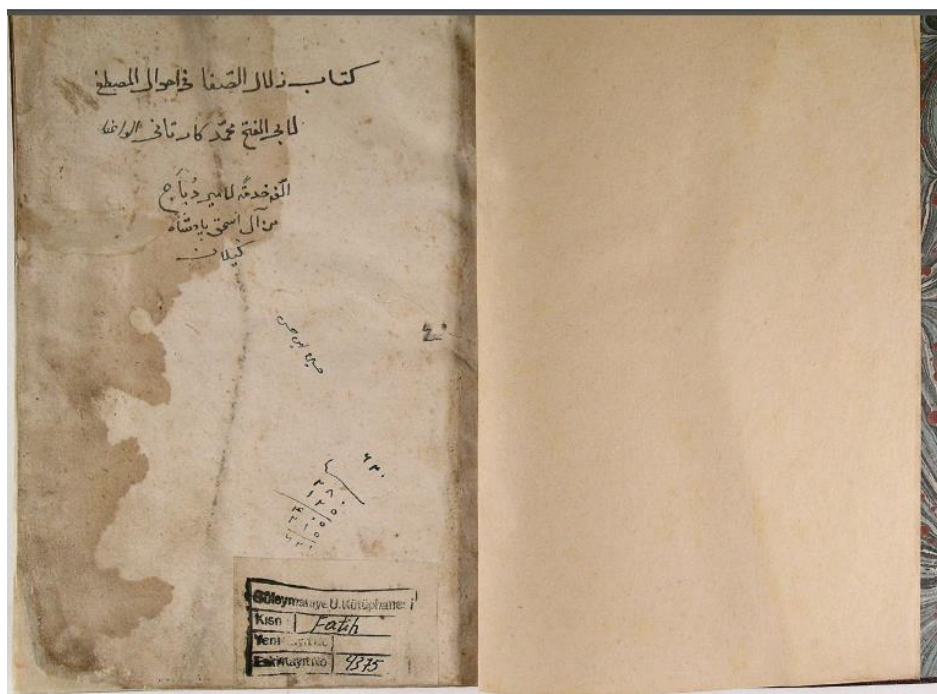 كتاب زلال الصفا في احوال المصطفى
لابي الفتح محمد
الفه خدمة لامير دُبَاج
من آل اسحق پادشاه
كيلان
٤٠
٦٣٠
٢٨٠
١٢٥
٤٠٥
Süleymaniye U. Kütüphanesi
Kısmı Fatih
Yeni Kayıt No
Eski Kayıt No 4375